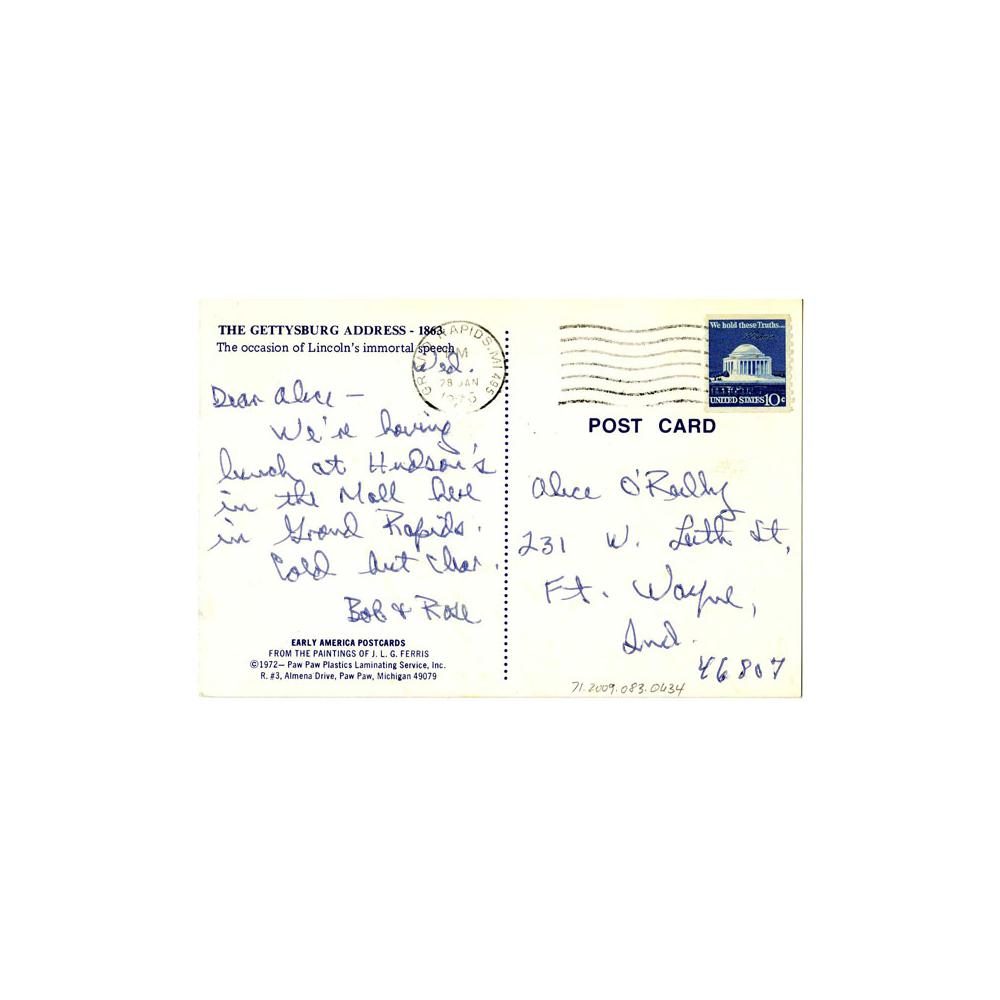 THE GETTYSBURG ADDRESS - 1863
The occasion of Lincoln's immortal speech
Wed.
Dear Alice —
We're having
lunch at Hudson's
in the Mall here
in Grand Rapids.
Cold but clear.
Bob & Rose
EARLY AMERICA POSTCARDS
FROM THE PAINTINGS OF J. L. G. FERRIS
©1972— Paw Paw Plastics Laminating Service, Inc.
R. #3, Almena Drive, Paw Paw, Michigan 49079
GRAND RAPIDS, MI 495
PM
28 JAN
We hold these Truths...
UNITED STATES 10c
POST CARD
Alice O'Reilly
231 W. Leith St,
Ft. Wayne,
Ind.
46807
71.2009.083.0434